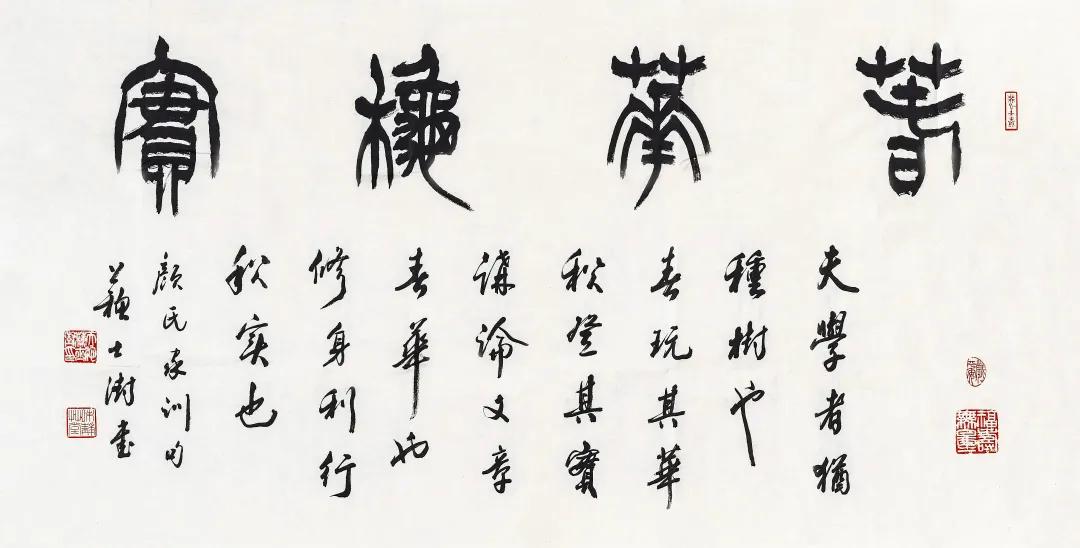 萅華穐實
夫學者猶
種樹也
春玩其華
秋登其實
講論文章
春華也
修身利行
秋实也
顔氏家訓句
蘇士澍書